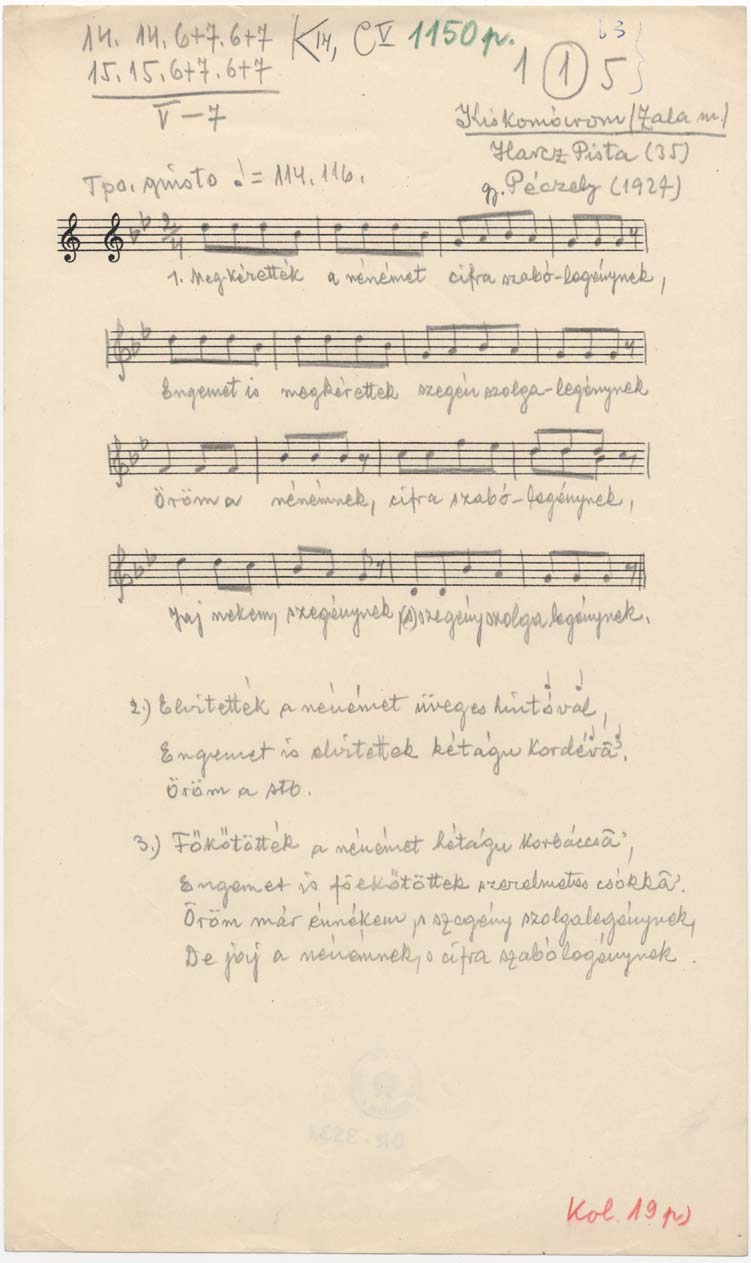 14. 14. 6+7. 6+7 K 14, C V 1150 p.
15. 15. 6+7. 6+7
V – 7
1 (1) 5
Kiskomárom (Zala m.)
Harcz Pista (35)
gy. Péczely (1924)
Tpo. giusto ♩= 114. 116.
2/4
1. Megkérették a nénémet cifra szabó-legénynek,
Engemet is megkérettek szegén szolga-legénynek
Öröm a nénémnek, cifra szabó-legénynek,
Jaj nekem, szegénynek, (s) szegény szolga legénynek.
2.) Elvitették a nénémet üveges hintóval,
Engemet is elvitettek kétágu kordévā'.
Öröm a stb.
3.) Főkötötték a nénémet kétágu korbáccsā',
Engemet is főekötöttek szerelmetes csókkā'.
Öröm már énnékem, s szegény szolgalegénynek,
De jaj a nénémnek, s cifra szabólegénynek.
Kol. 19 p)